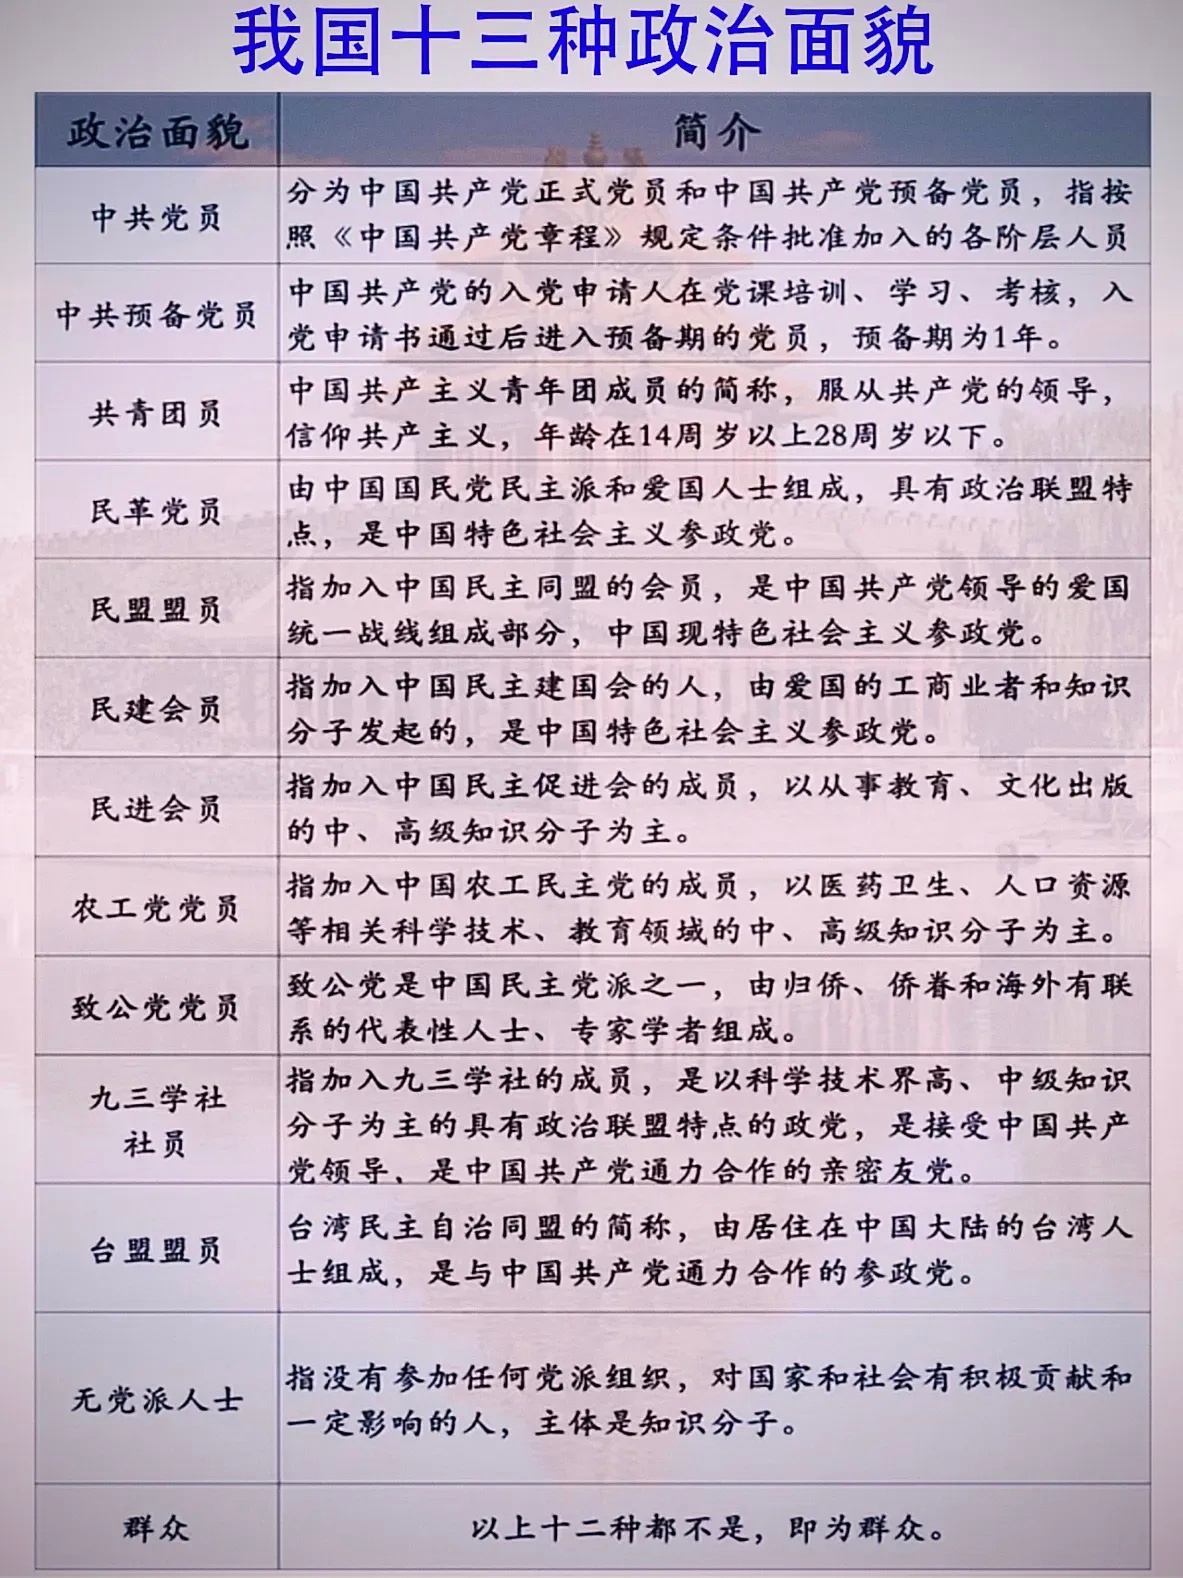 我国十三种政治面貌
政治面貌
简介
中共党员
分为中国共产党正式党员和中国共产党预备党员，指按
照《中国共产党章程》规定条件批准加入的各阶层人员
中共预备党员
中国共产党的入党申请人在党课培训、学习、考核，入
党申请书通过后进入预备期的党员，预备期为1年。
共青团员
中国共产主义青年团成员的简称，服从共产党的领导，
信仰共产主义，年龄在14周岁以上28周岁以下。
民革党员
由中国国民党民主派和爱国人士组成，具有政治联盟特
点，是中国特色社会主义参政党。
民盟盟员
指加入中国民主同盟的会员，是中国共产党领导的爱国
统一战线组成部分，中国现特色社会主义参政党。
民建会员
指加入中国民主建国会的人，由爱国的工商业者和知识
分子发起的，是中国特色社会主义参政党。
民进会员
指加入中国民主促进会的成员，以从事教育、文化出版
的中、高级知识分子为主。
农工党党员
指加入中国农工民主党的成员，以医药卫生、人口资源
等相关科学技术、教育领域的中、高级知识分子为主。
致公党党员
致公党是中国民主党派之一，由归侨、侨眷和海外有联
系的代表性人士、专家学者组成。
九三学社
社员
指加入九三学社的成员，是以科学技术界高、中级知识
分子为主的具有政治联盟特点的政党，是接受中国共产
党领导、是中国共产党通力合作的亲密友党。
台盟盟员
台湾民主自治同盟的简称，由居住在中国大陆的台湾人
士组成，是与中国共产党通力合作的参政党。
无党派人士
指没有参加任何党派组织，对国家和社会有积极贡献和
一定影响的人，主体是知识分子。
群众
以上十二种都不是，即为群众。